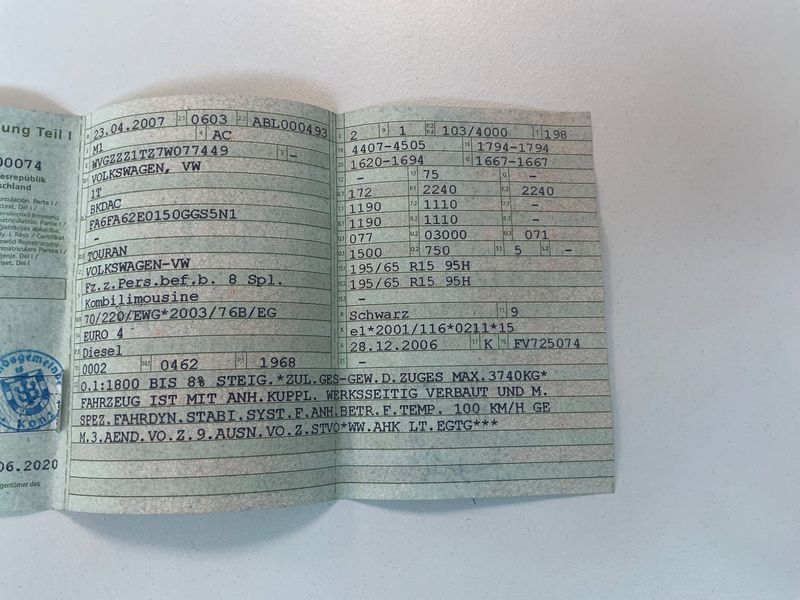 ung Teil I
00074
esrepublik
schland
06.2020
23.04.2007 0603 ABL000493
M1 AC
WVGZZZ1TZ7W077449 -
VOLKSWAGEN, VW
1T
BKDAC
FA6FA62E0150GGS5N1
-
TOURAN
VOLKSWAGEN-VW
Fz.z.Pers.bef.b. 8 Spl.
Kombilimousine
70/220/EWG*2003/76B/EG
EURO 4
Diesel
0002 0462 1968
2 1 103/4000 198
4407-4505 1794-1794
1620-1694 1667-1667
- 75 -
172 2240 2240
1190 1110 -
1190 1110 -
077 03000 071
1500 750 5 -
195/65 R15 95H
195/65 R15 95H
-
Schwarz 9
e1*2001/116*0211*15
28.12.2006 K FV725074
-
O.1:1800 BIS 8% STEIG.*ZUL.GES-GEW.D.ZUGES MAX.3740KG*
FAHRZEUG IST MIT ANH.KUPPL. WERKSSEITIG VERBAUT UND M.
SPEZ.FAHRDYN.STABI.SYST.F.ANH.BETR.F.TEMP. 100 KM/H GE
M.3.AEND.VO.Z.9.AUSN.VO.Z.STVO*WW.AHK LT.EGTG***